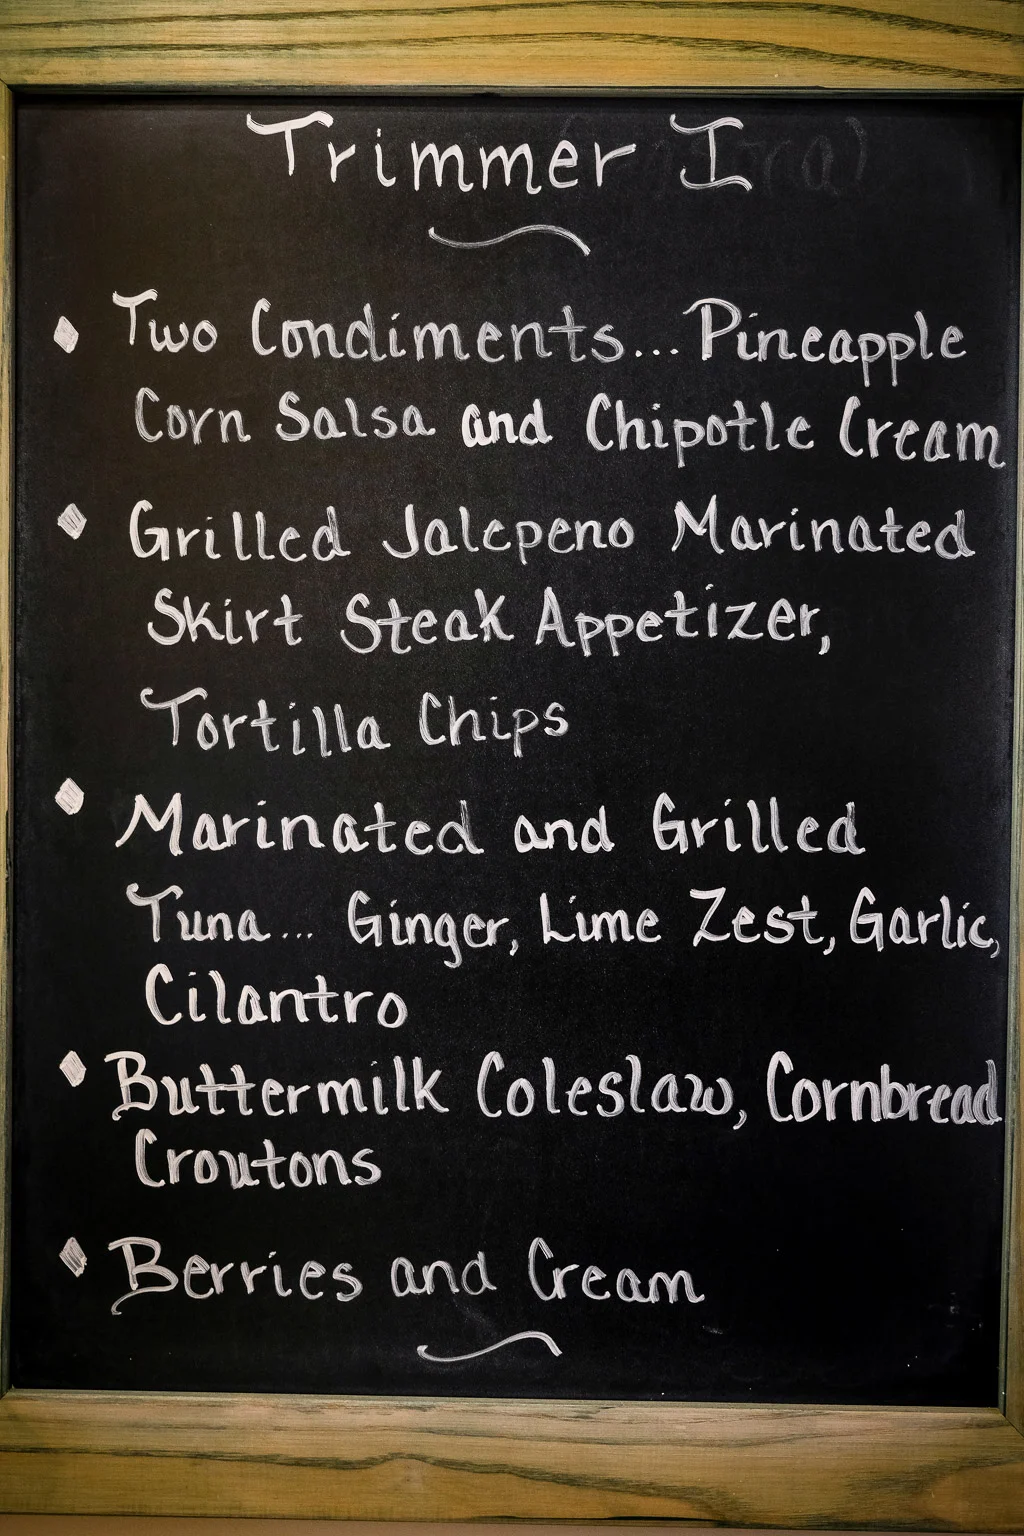 Trimmer I
Two Condiments... Pineapple
Corn Salsa and Chipotle Cream
Grilled Jalepeno Marinated
Skirt Steak Appetizer,
Tortilla Chips
Marinated and Grilled
Tuna... Ginger, Lime Zest, Garlic,
Cilantro
Buttermilk Coleslaw, Cornbread
Croutons
Berries and Cream